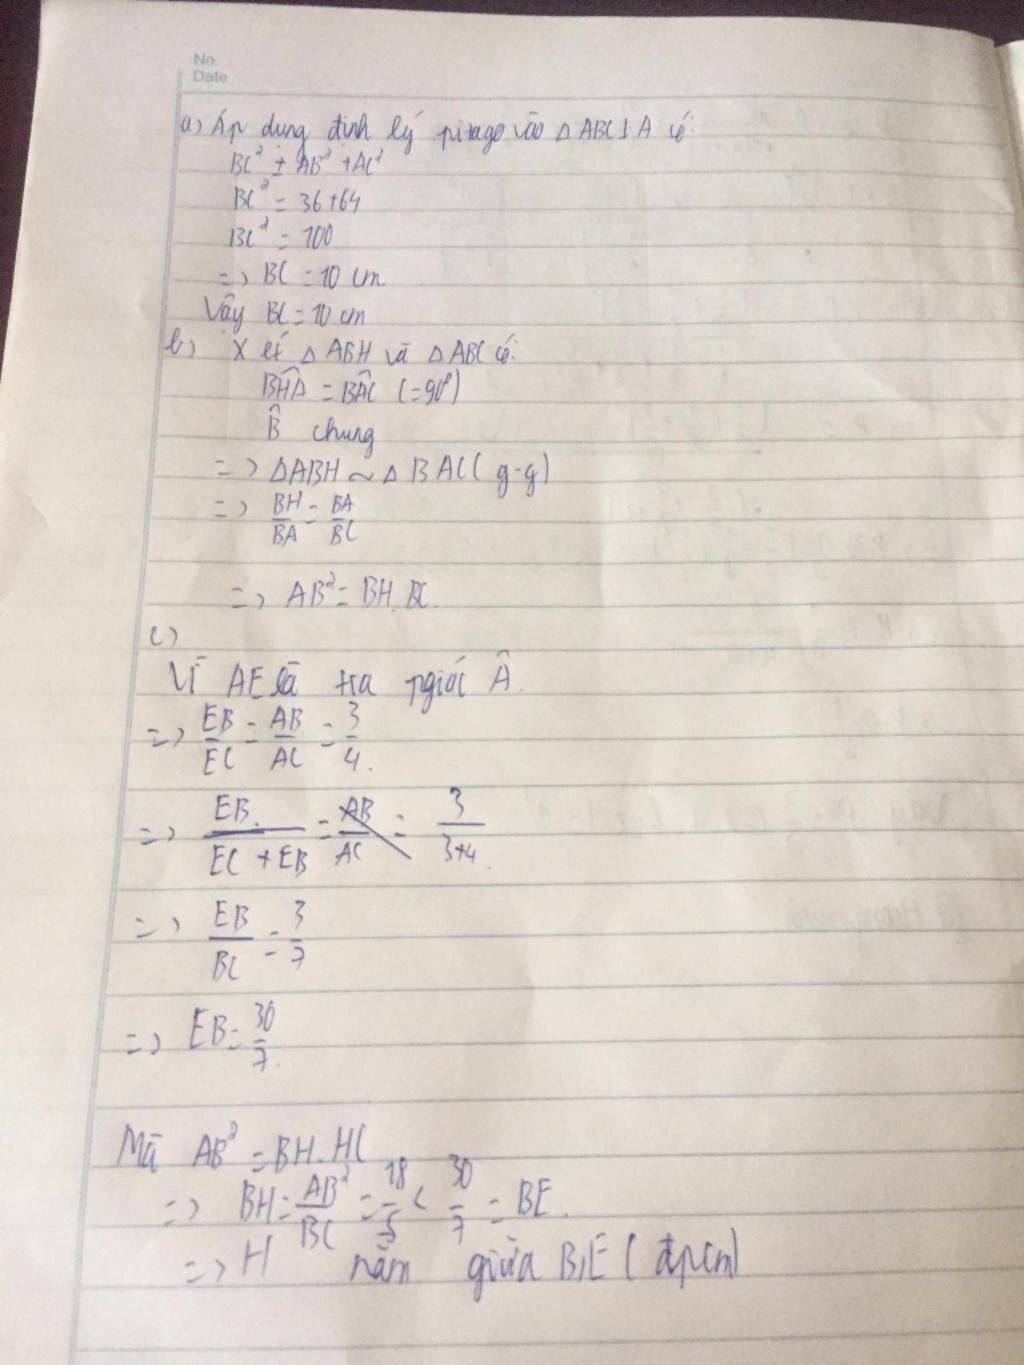 No.
Date
a) Áp dụng định lý pitago vào △ ABC⊥A có:
BC² = AB² + AC²
BC² = 36+64
BC² = 100
=> BC = 10 cm.
Vậy BC = 10 cm
b) Xét △ ABH và △ ABC có:
BHA = BAC (=90°)
B̂ chung
=> △ABH ~ △ BAC ( g-g)
=> BH/BA = BA/BC
=> AB² = BH.BC.
c)
Vì AE là tia pgiác Â.
=> EB/EC = AB/AC = 3/4.
=> EB/EC + EB = AB/AC = 3/3+4
=> EB/BC = 3/7
=> EB = 30/7.
Mà AB² = BH.HC
=> BH = AB²/BC = 18/5 < 30/7 = BE.
=> H nằm giữa B,E ( đpcm)